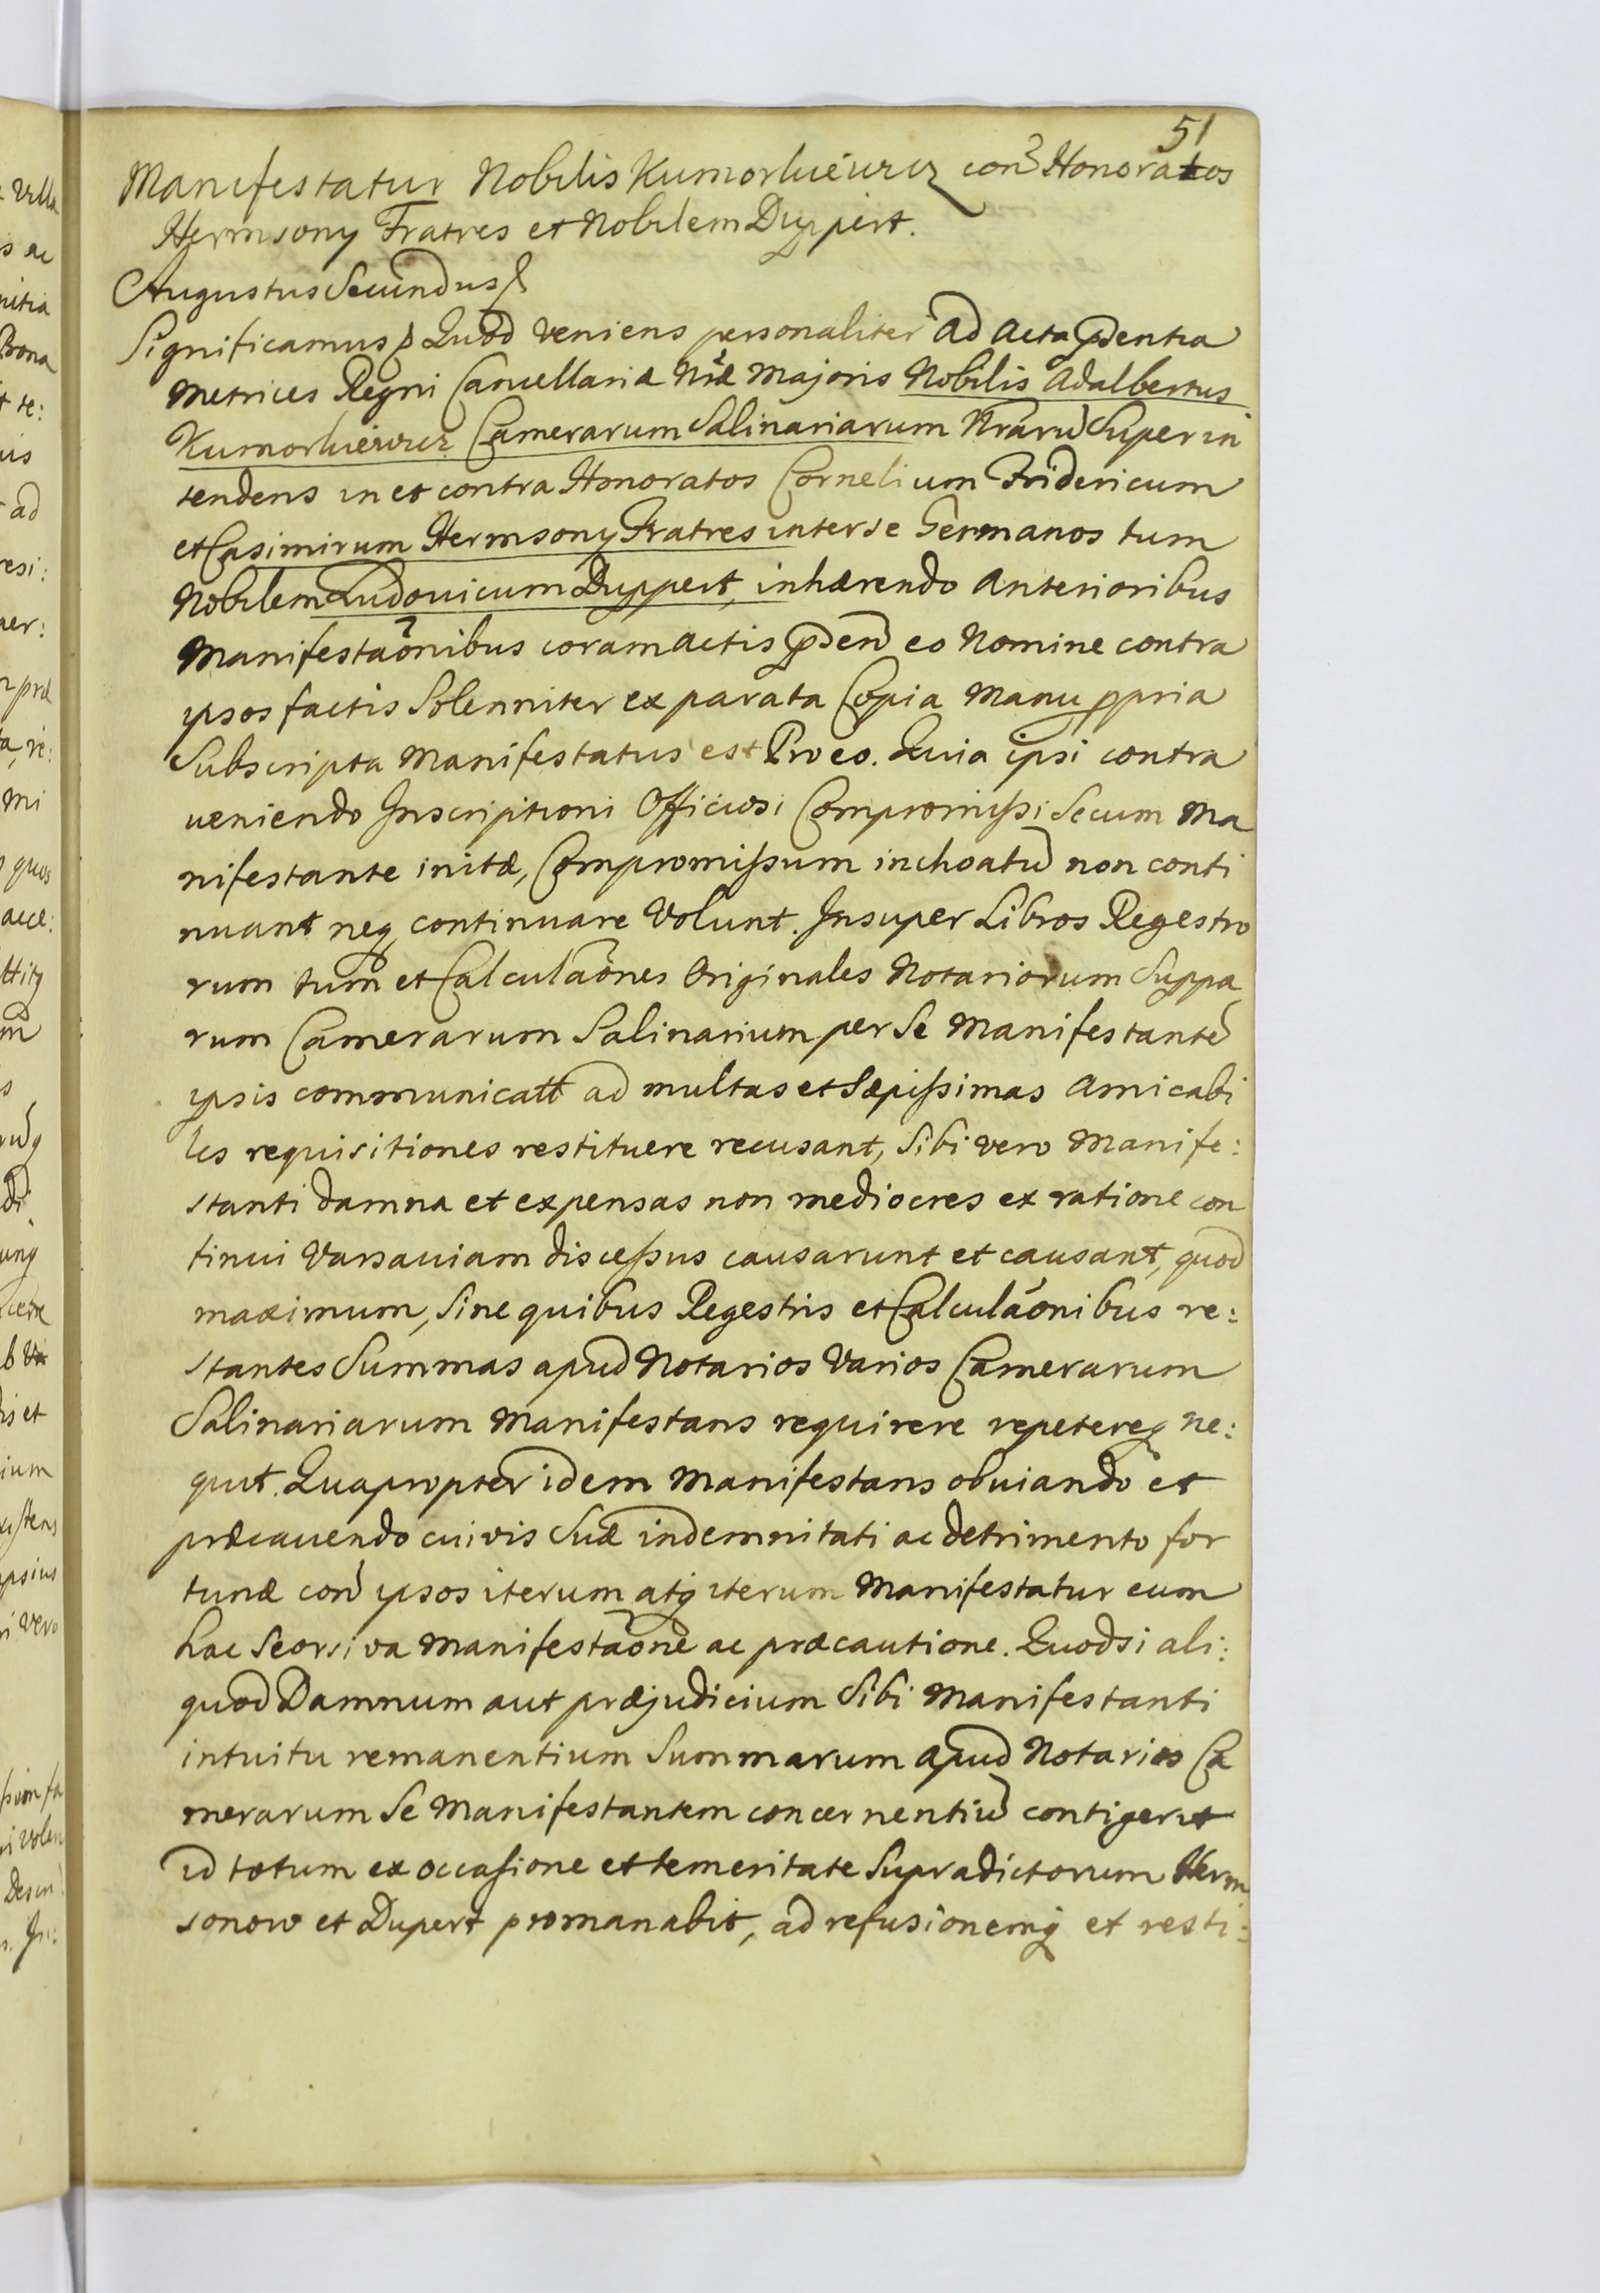 51
Manifestatur Nobilis Kumorkiewicz con Honoratos
Hermsony Fratres et Nobilem Duppert.
Augustus Secundus
Significamus Quod veniens personaliter ad acta pñdentia
Metrices Regni Cancellariæ Nræ Majoris Nobilis Adalbertus
Kumorkiewicz Camerarum Salinariarum Nrarū Superin
tendens in et contra Honoratos Cornelium Fridericum
et Casimirum Hermsony Fratres inter se Germanos tum
Nobilem Ludovicum Duppert, inhærendo Anterioribus
Manifestaõnibus coram actis pñden eo Nomine contra
ipsos factis Solenniter ex parata Copia Manu ppria
Subscripta Manifestatus est Pro eo. Quia ipsi contra
ueniendo Inscriptioni Officiosi Compromissi Secum Ma
nifestante initæ, Compromissum inchoatū non conti
nuant neq continuare Volunt. Insuper Libros Regestro
rum tum et Calculaõnes Originales Notariorum Suppa
rum Camerarum Salinarium per Se Manifestantē
ipsis communicatt ad multas et Sæpissimas Amicabi
les requisitiones restituere recusant, Sibi vero Manife:
stanti damna et expensas non mediocres ex ratione con
tinui Varsauiam discessus causarunt et causant, quod
maximum, Sine quibus Regestris et Calculaõnibus re:
stantes Summas apud Notarios Varios Camerarum
Salinariarum Manifestans requirere repetereq ne:
quit. Quapropter idem Manifestans obuiando et
præcauendo cuivis Suæ indemnitati ac detrimento for
tunæ con ipsos iterum atq iterum Manifestatur cum
hac Seorsiva Manifestaõne ac præcautione. Quodsi ali:
quod Damnum aut præjudicium Sibi Manifestanti
intuitu remanentium Summarum apud Notarios Ca
merarum Se Manifestantem concernentiū contigerit
id totum ex occasione et temeritate Supradictorum Herm
sonow et Dupert promanabit, ad refusionemq et resti: